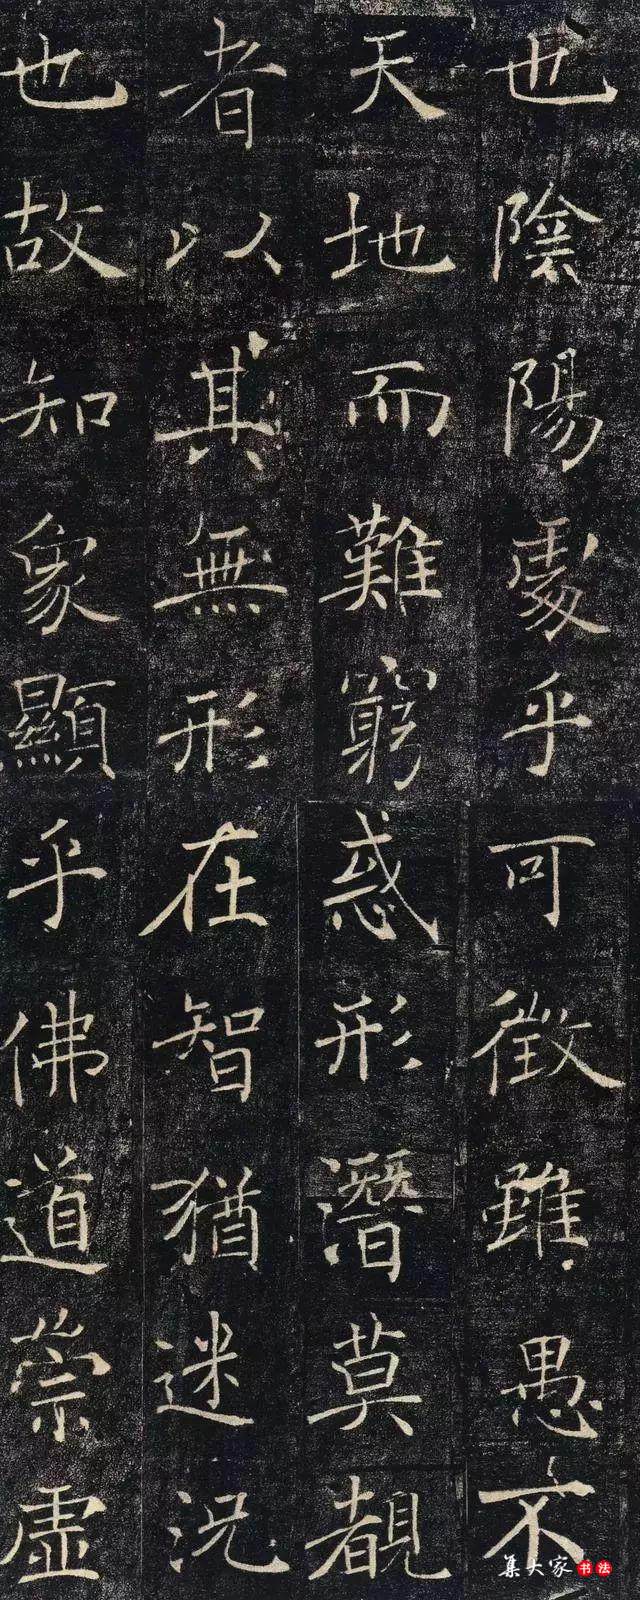 也陰陽處乎
天地而難窮
者以其無形
也故知象顯
可徵雖愚不
惑形潛莫覩
在智猶迷況
乎佛道崇虛
集大家书法